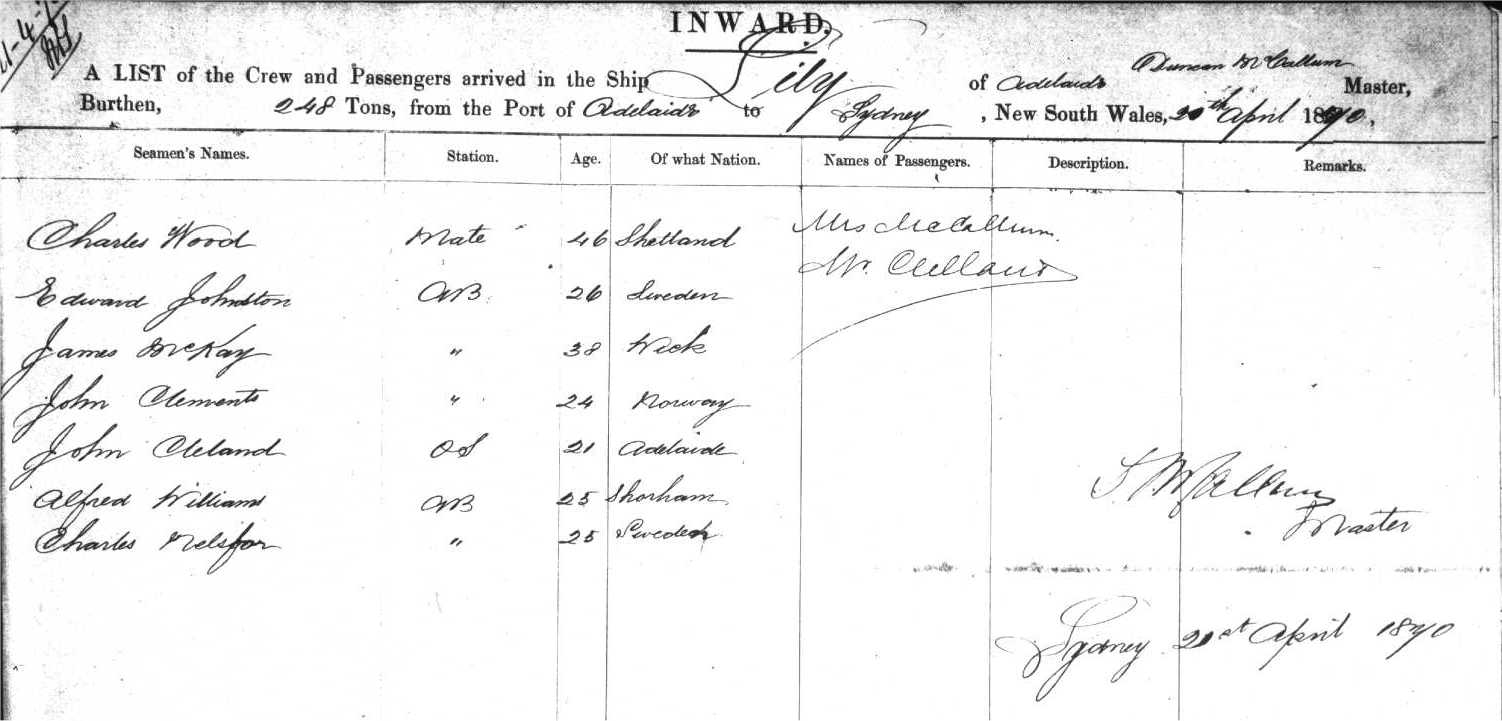 21-4-
INWARD.
A LIST of the Crew and Passengers arrived in the Ship Lily of Adelaide Duncan McCallum Master,
Burthen, 248 Tons, from the Port of Adelaide to Sydney, New South Wales, 20th April 1870,
Seamen's Names. Station. Age. Of what Nation. Names of Passengers. Description. Remarks.
Charles Wood Mate 46 Shetland Mrs McCallum
Mr. Clelland
Edward Johnston AB 26 Sweden
James McKay " 38 Wick
John Clements " 24 Norway
John Cleland OS 21 Adelaide
Alfred Williams AB 25 Shorham
Charles " 25 Sweden
McCallum
Master
Sydney 21st April 1870